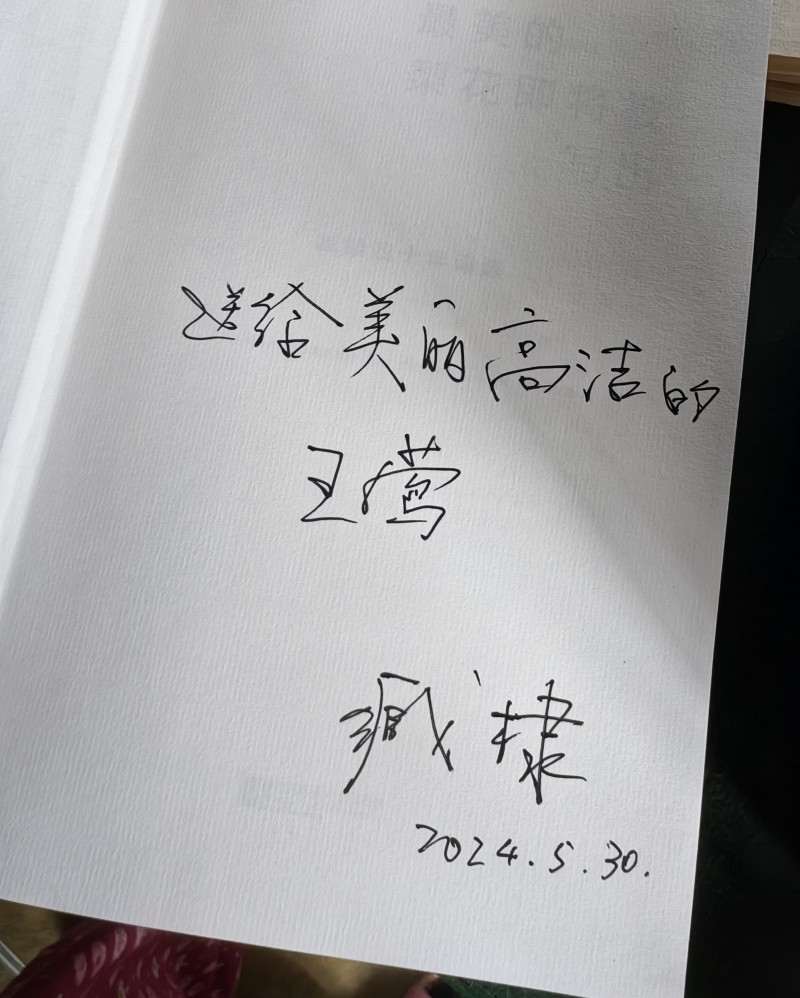 送给美丽高洁的
王莺
臧棣
2024.5.30.